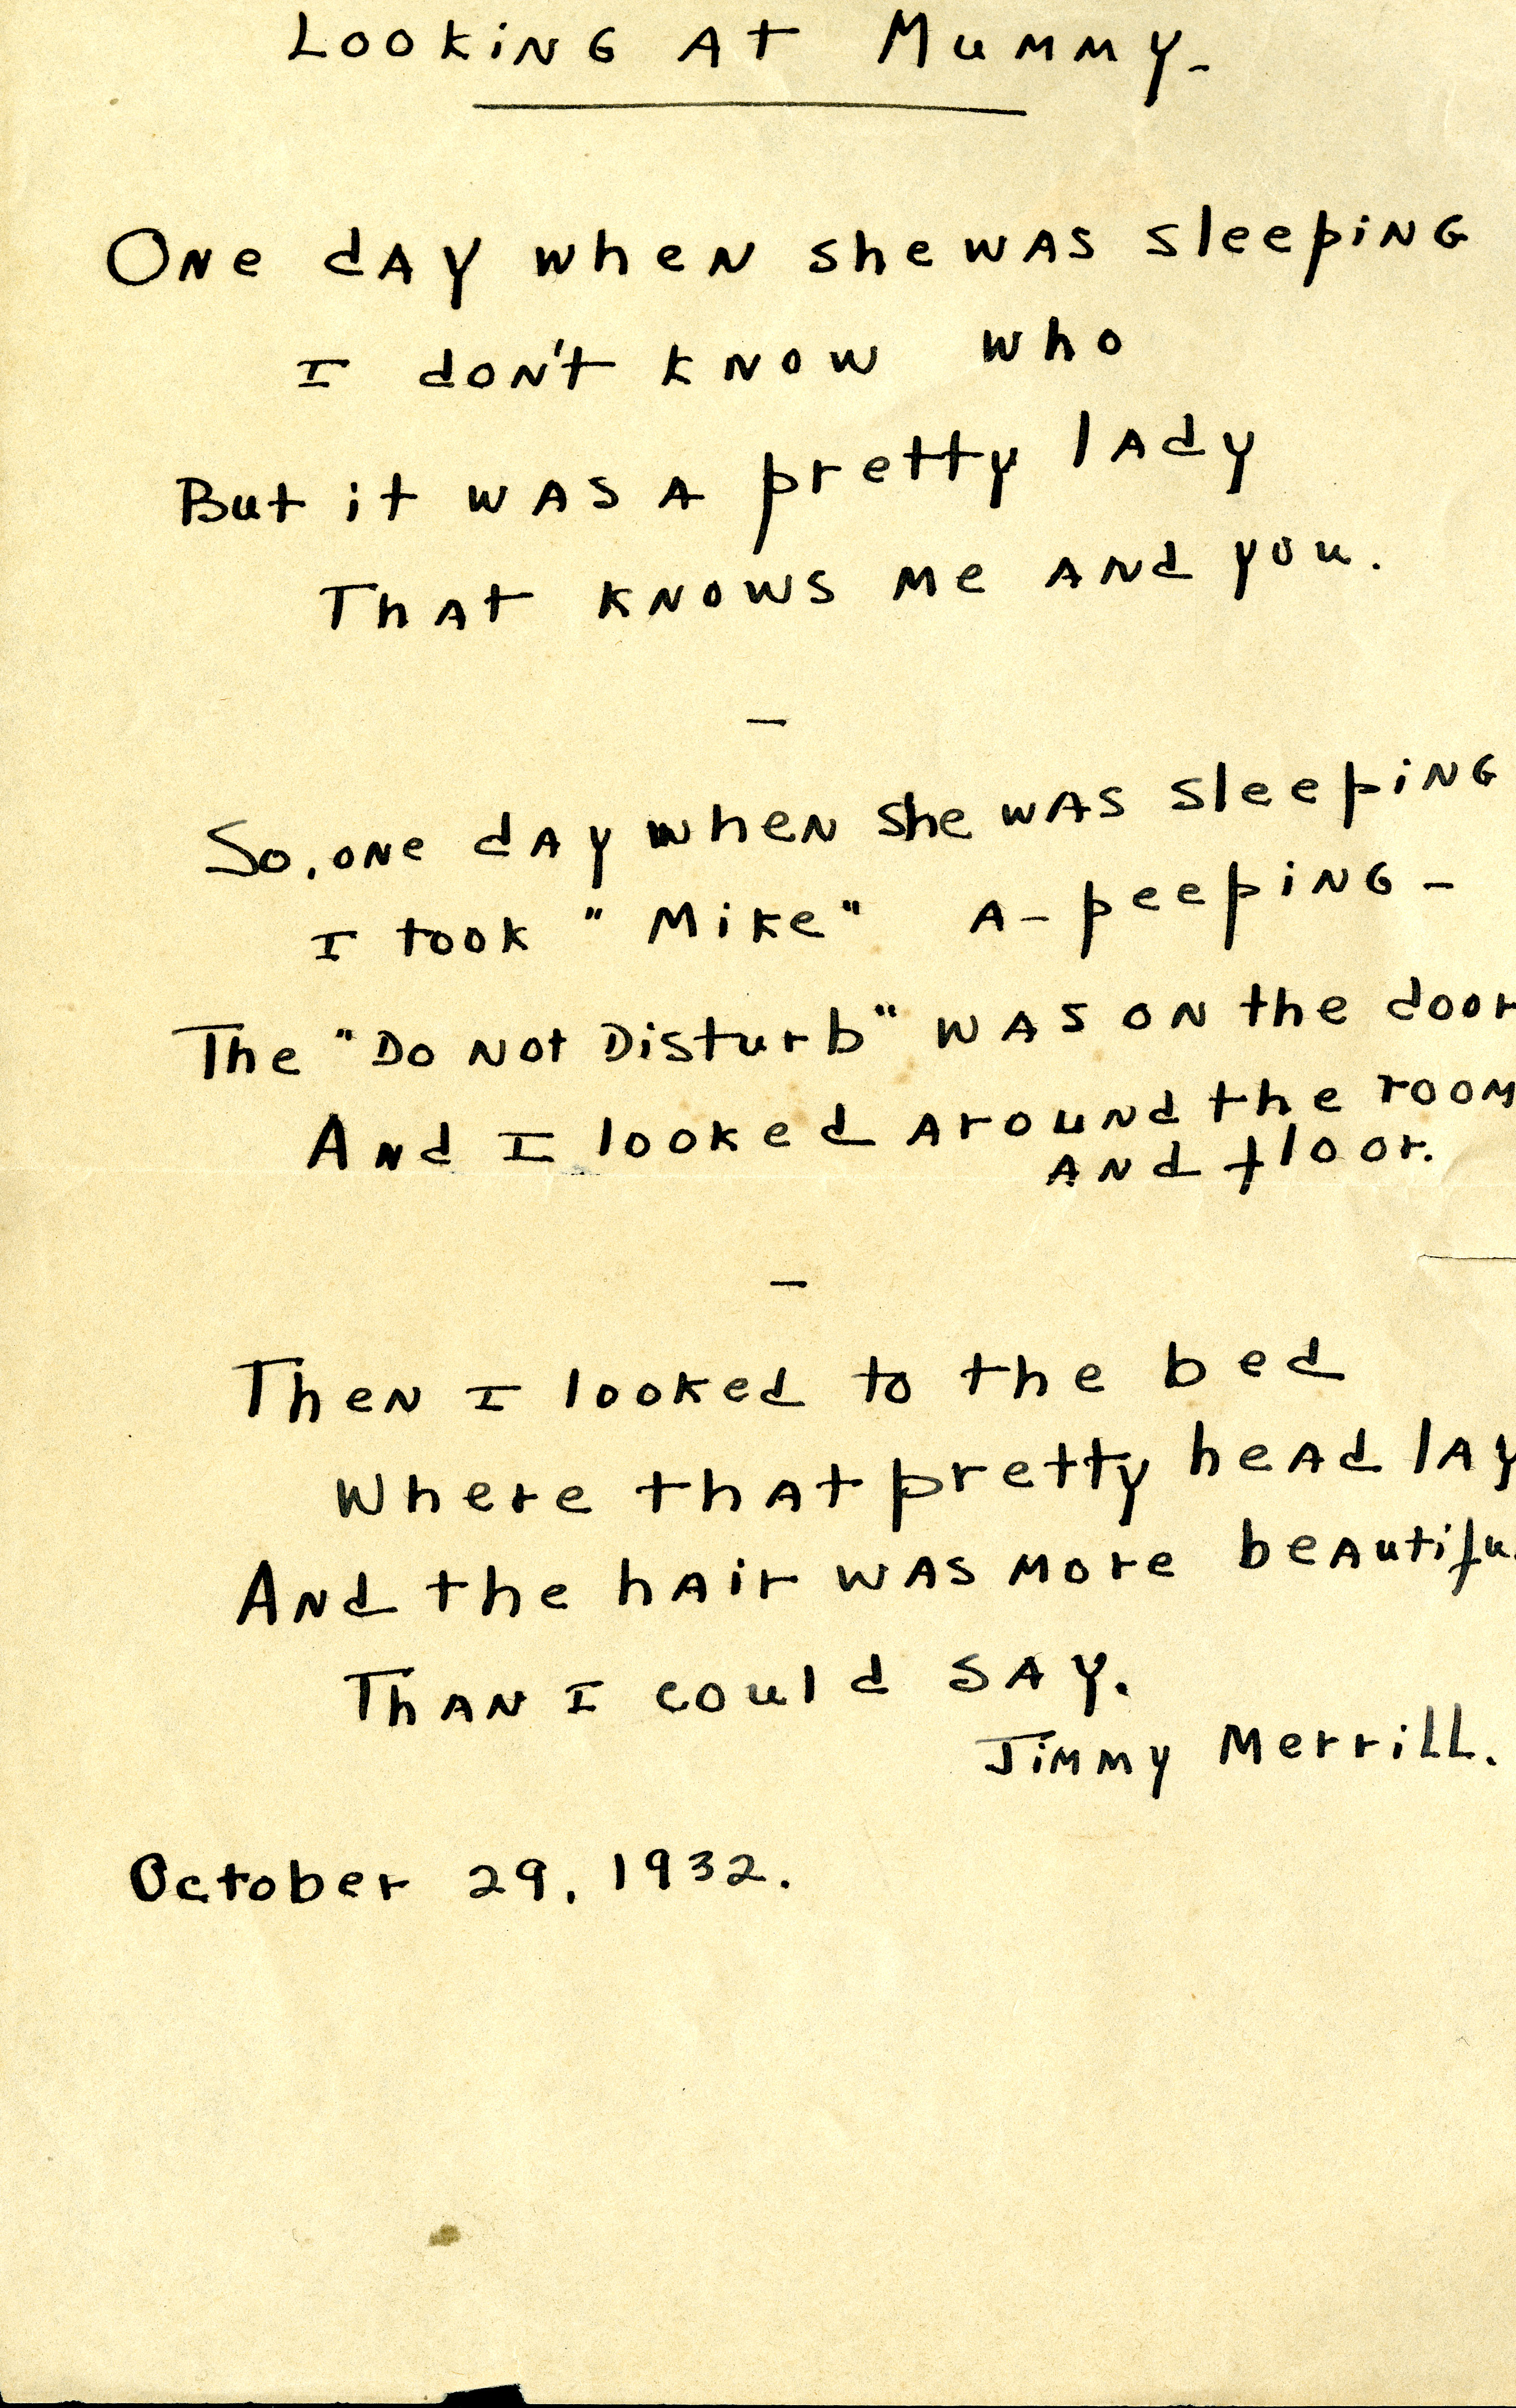 Looking at Mummy-
One day when she was sleeping
I don't know who
But it was a pretty lady
That knows me and you.
—
So, one day when she was sleeping
I took "Mike" a-peeping-
The "Do Not Disturb" was on the door
And I looked around the room
and floor.
—
Then I looked to the bed
Where that pretty head lay
And the hair was more beautifu
Than I could say.
Jimmy Merrill.
October 29, 1932.